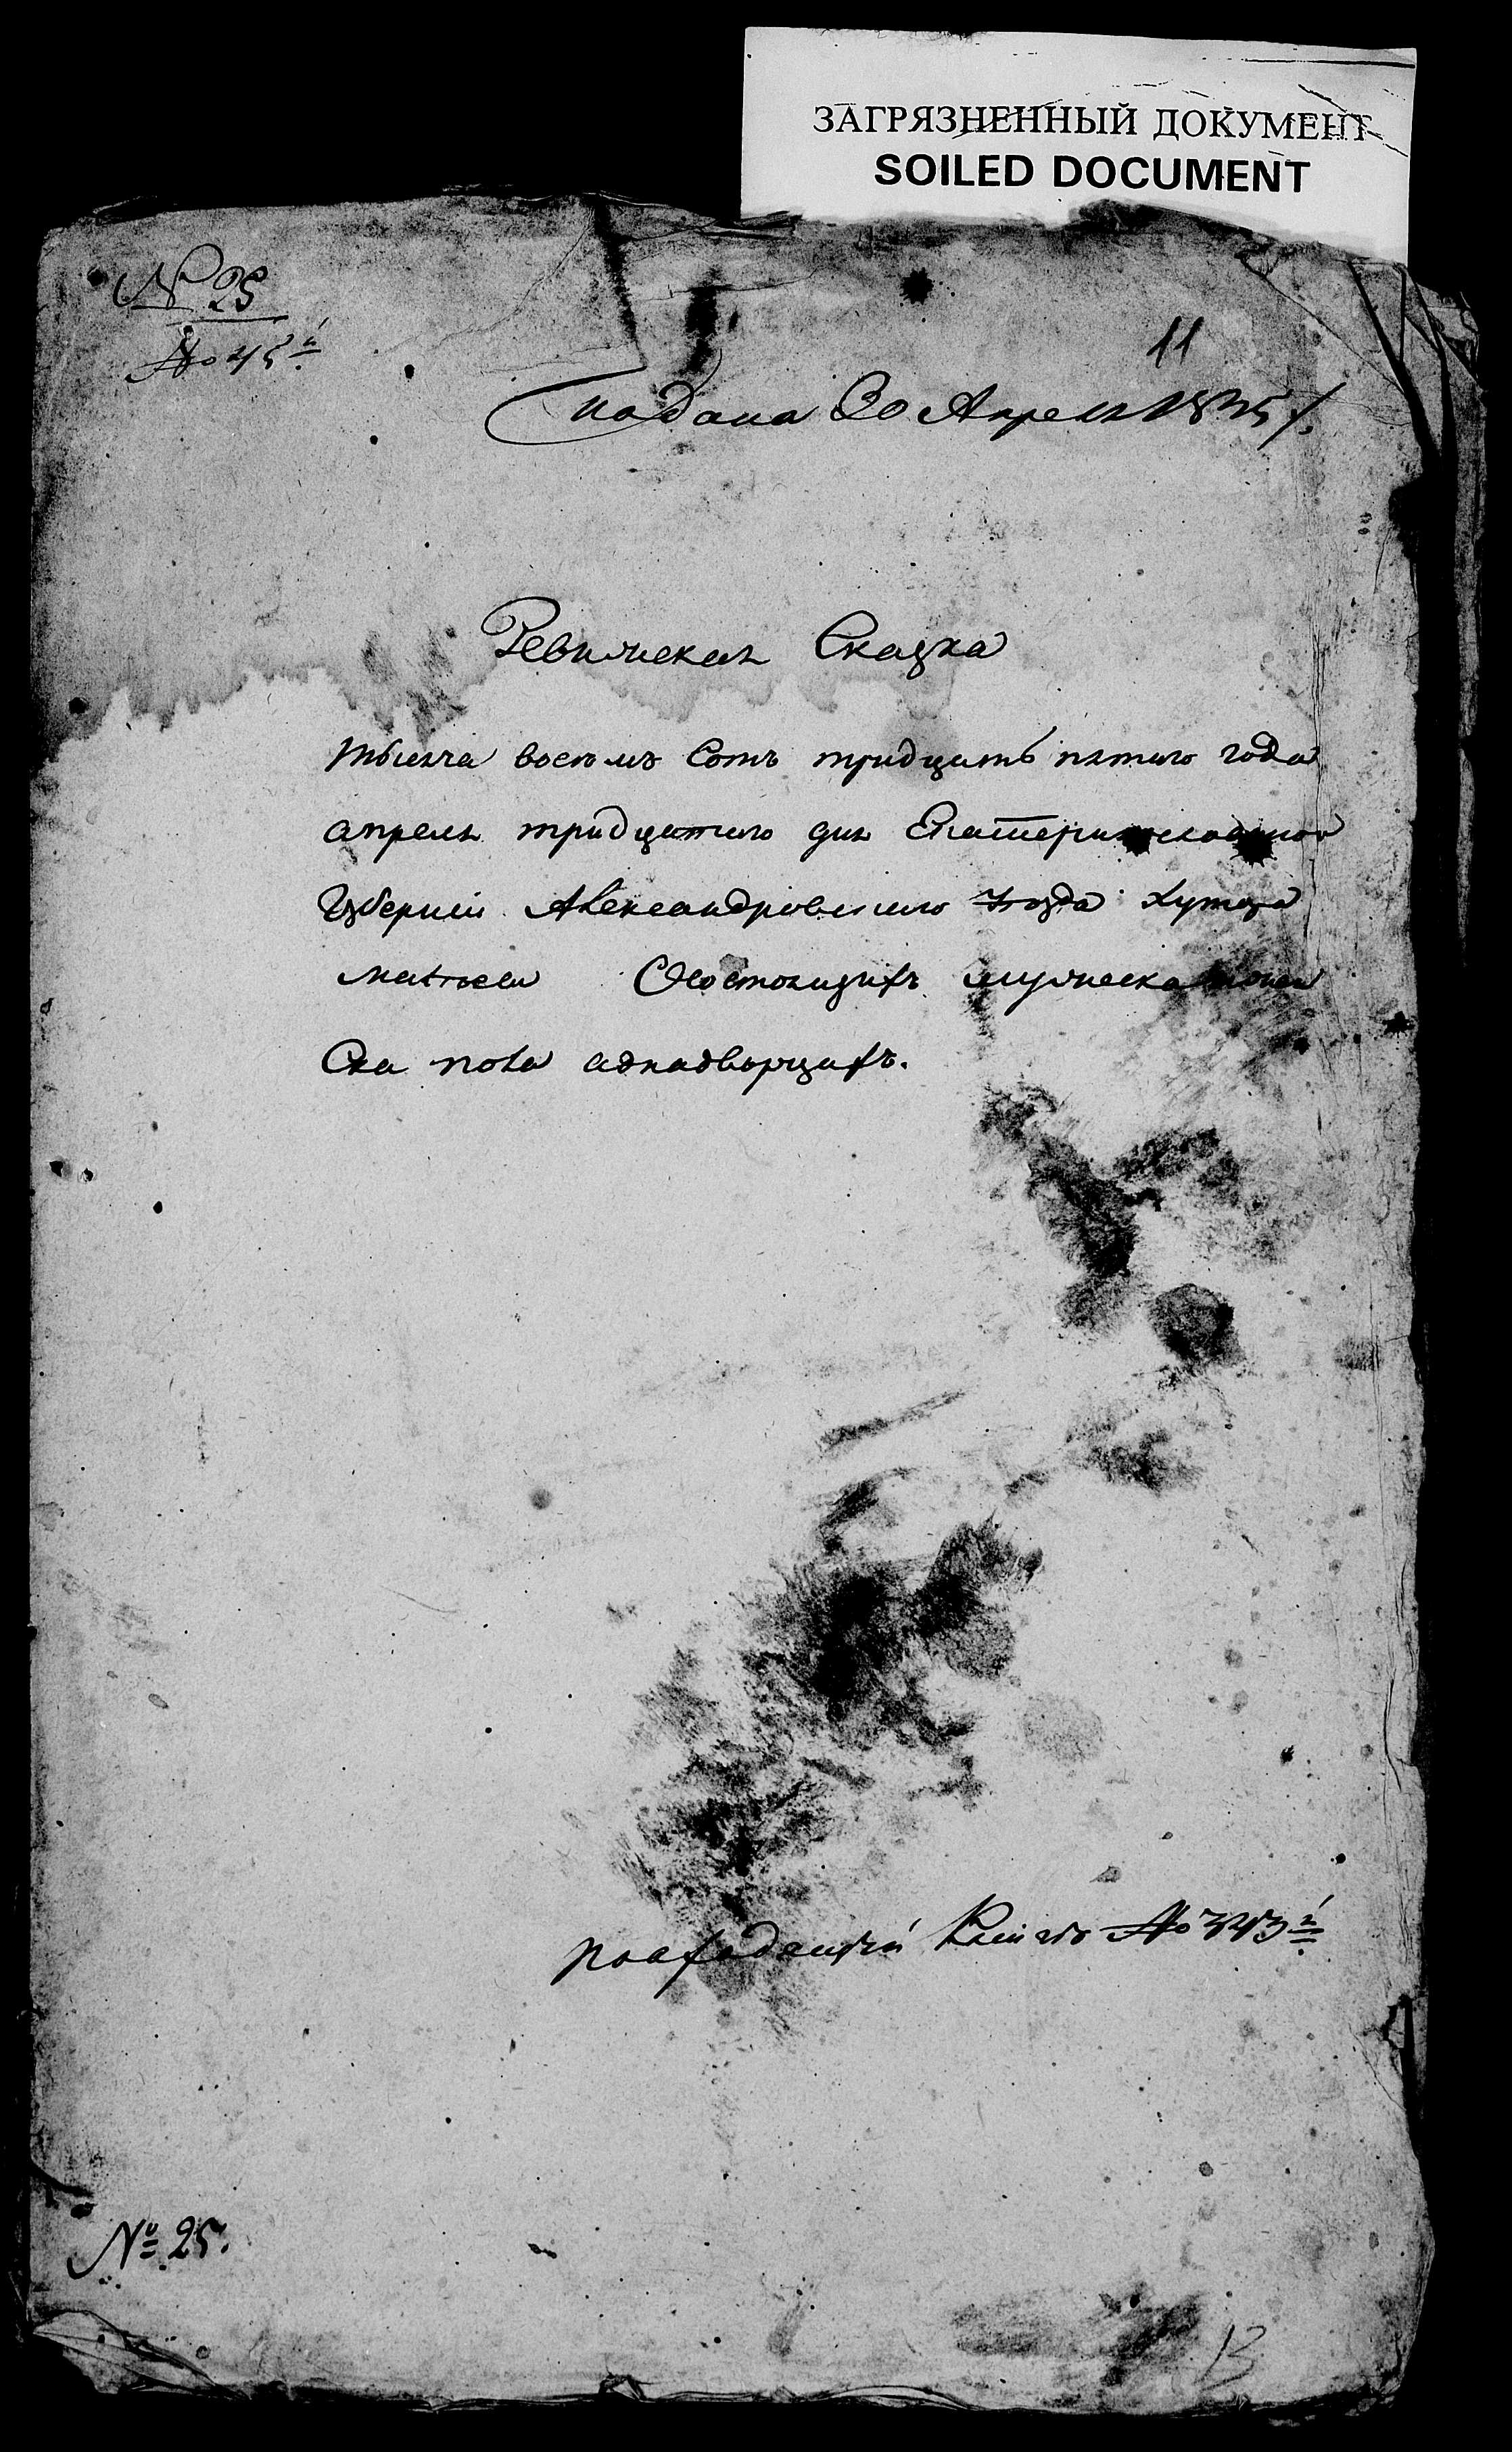 ЗАГРЯЗНЕННЫЙ ДОКУМЕНТ
SOILED DOCUMENT
№ 25
№ 45й
11
подана 30 Апреля 1835 г.
Ревижская Сказка
тысяча восемъ Сотъ тридцать пятого года
апреля тридцатого дня Екатеринославской
Губернии Александровского Уезда Хутора
матвеева Состоящихъ мужеска женс
Ска пола аднадворцахъ.
по Книге № 343й
№ 25.
13